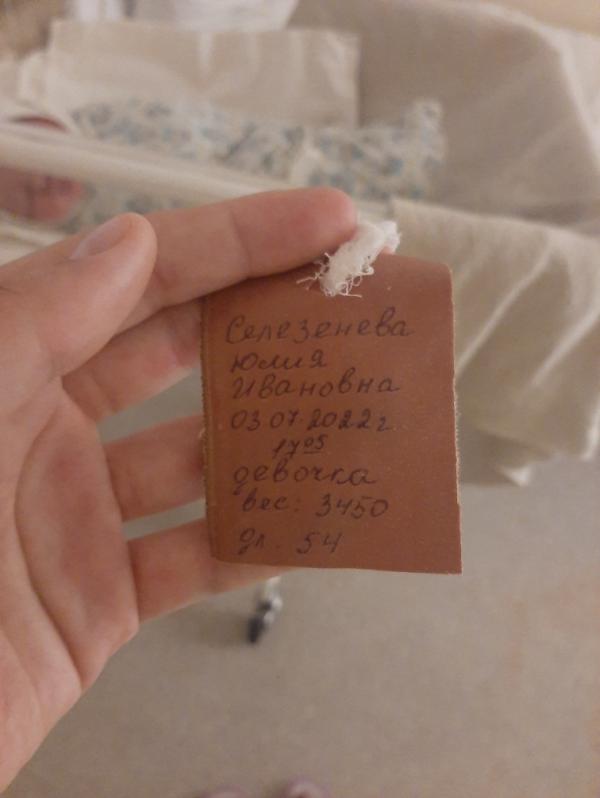 Селезенева
Юлия
Ивановна
03.07.2022г.
17 05
девочка
вес: 3450
дл. 54